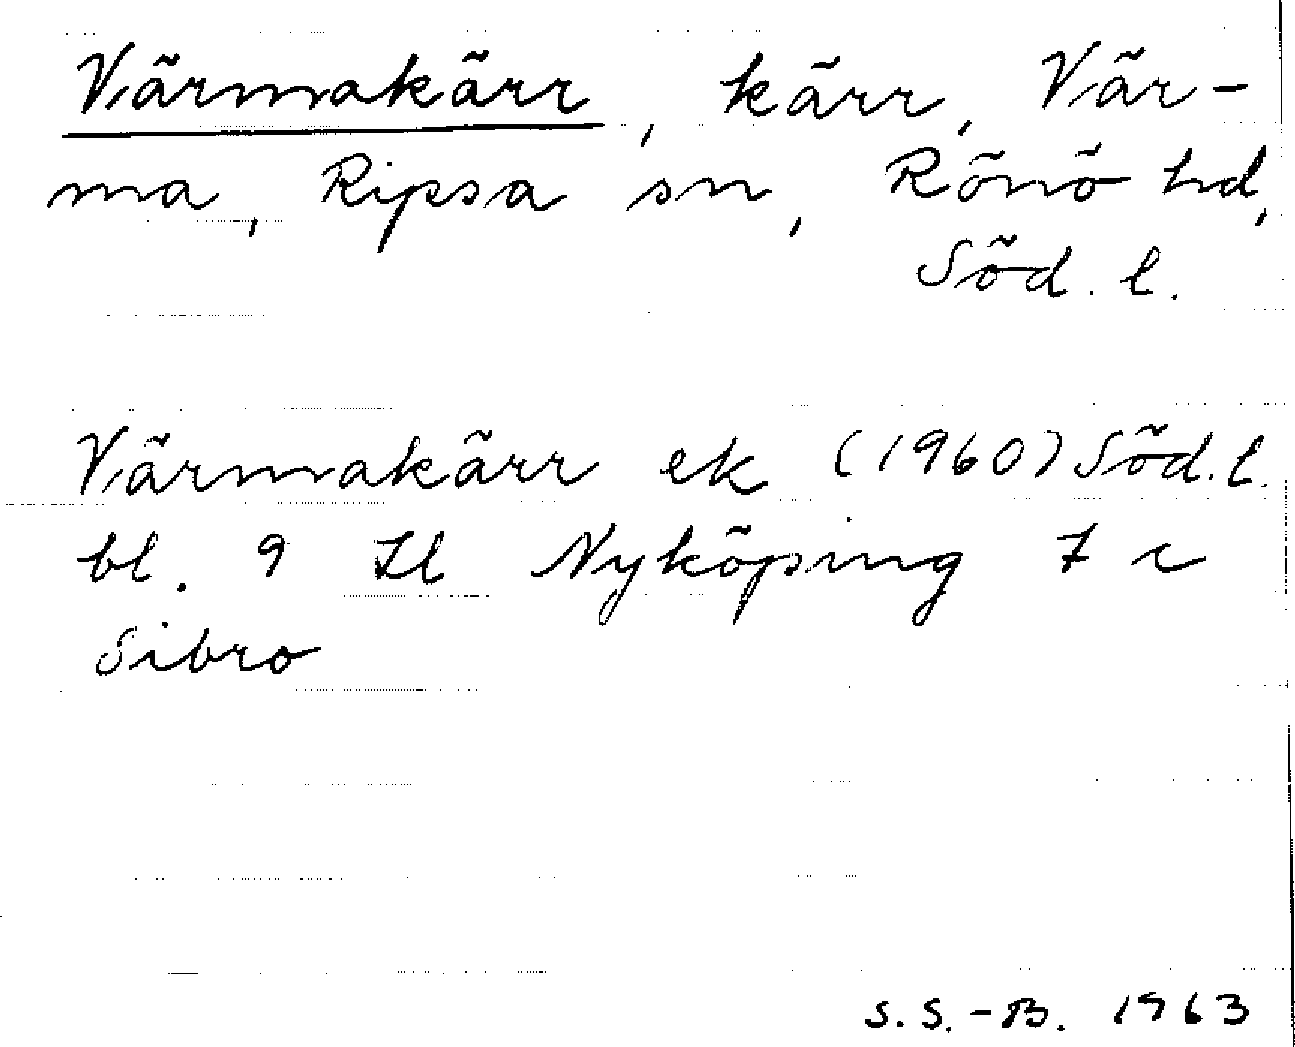 Värmakärr, kärr, Vär-
ma, Ripsa sn, Rönö hd,
Söd. l.
Värmakärr ek (1960) Söd. l.
bl. 9 Nyköping 7 c
Sibro
S. S.-B. 1963